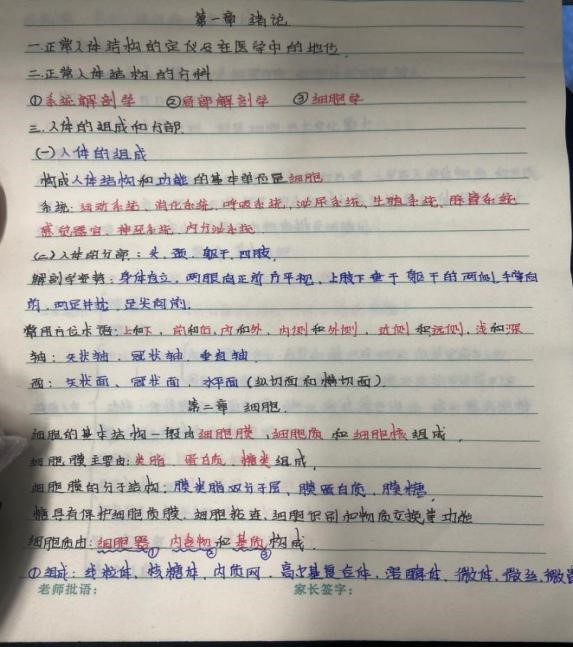 第一章 绪论
一.正常人体结构的定仪及在医学中的地位.
二.正常人体结构的分科
①系统解剖学 ②局部解剖学 ③细胞学
三.人体的组成和分部.
(一)人体的组成
构成人体结构和功能的基本单位是细胞
系统:运动系统、消化系统、呼吸系统、泌尿系统、生殖系统、脉管系统
感觉器官、神经系统、内分泌系统
(二)人体的分部:头、颈、躯干、四肢.
解剖学姿势:身体直立,两眼向正前方平视,上肢下垂于躯干的两侧,手掌向
前,两足并拢,足尖向前.
常用方位术语:上和下、前和后,内和外、内侧和外侧、近侧和远侧,浅和深
轴:矢状轴、冠状轴、垂直轴.
面:矢状面、冠状面、水平面(纵切面和横切面).
第二章 细胞.
细胞的基本结构一般由细胞膜、细胞质和细胞核组成.
细胞膜主要由:类脂、蛋白质、糖类组成.
细胞膜的分子结构:膜类脂双分子层、膜蛋白质、膜糖.
糖具有保护细胞质膜、细胞粘连、细胞识别和物质交换等功能
细胞质由:细胞器①、内含物②和基质③构成.
①组成:线粒体、核糖体、内质网、高尔基复合体、溶酶体、微体、微丝、微
老师批语: 家长签字: